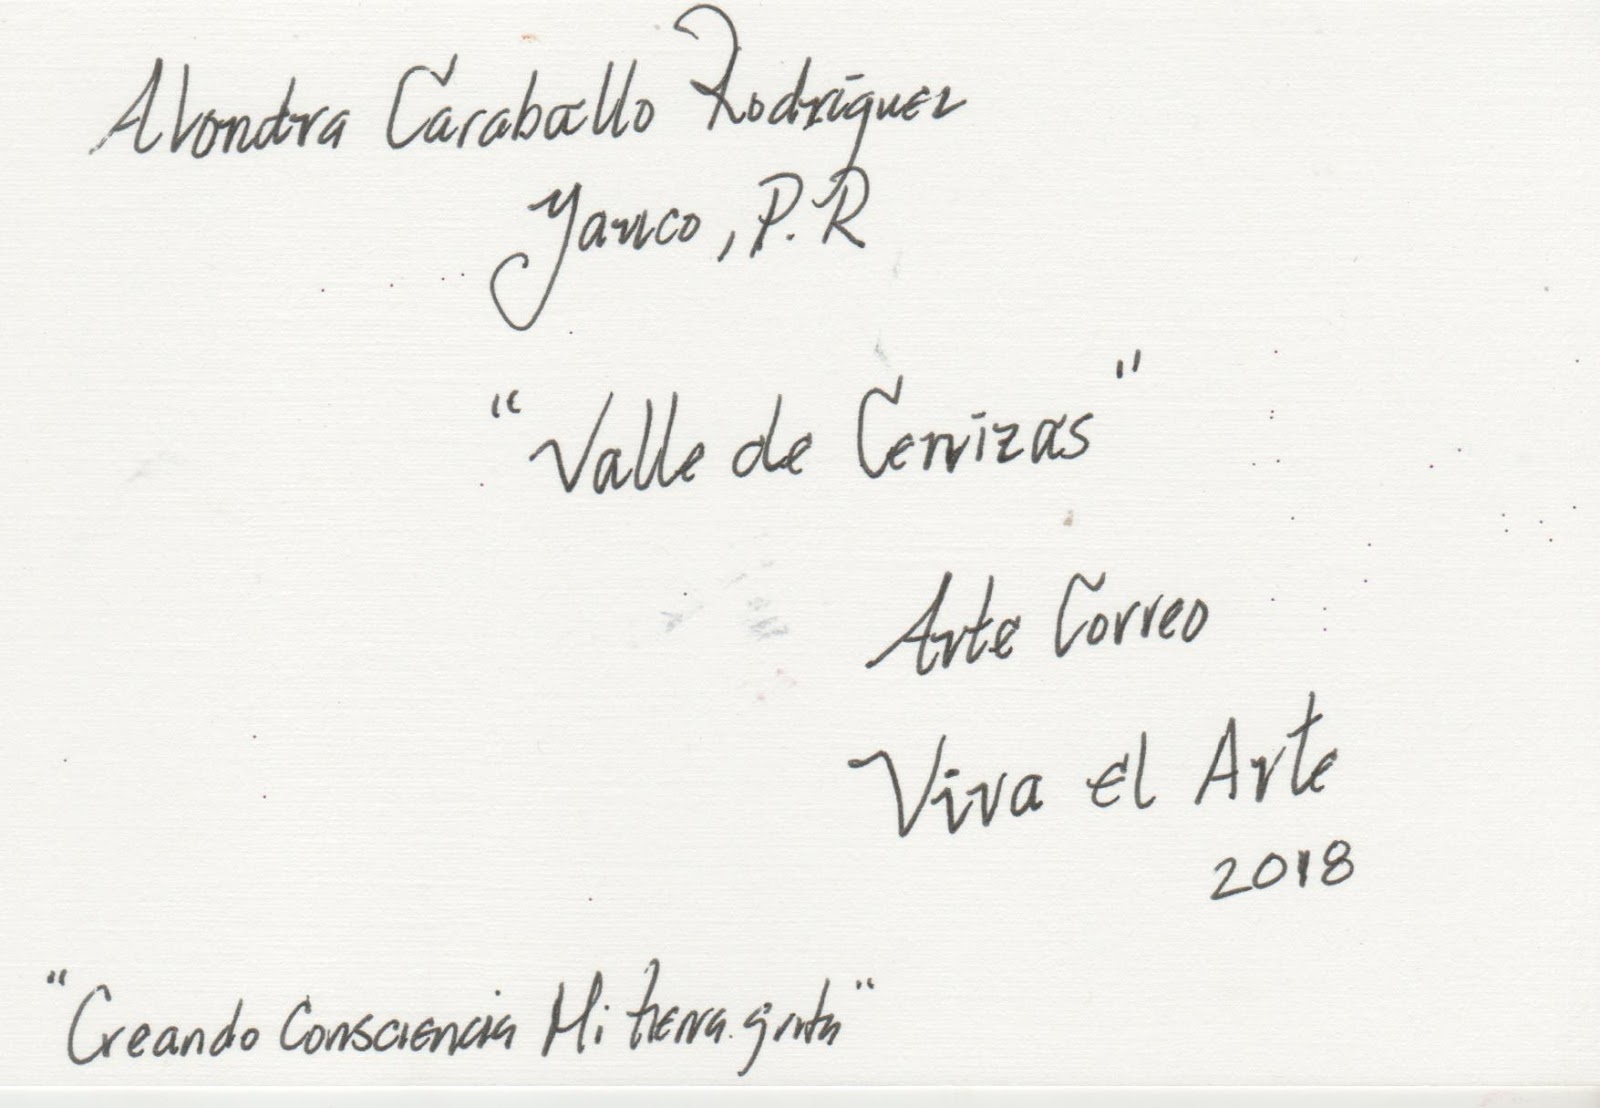 Alondra Caraballo Rodríguez
Yauco, P.R
"Valle de Cenizas"
Arte Correo
Viva el Arte
2018
"Creando Consciencia Mi tierra grita"